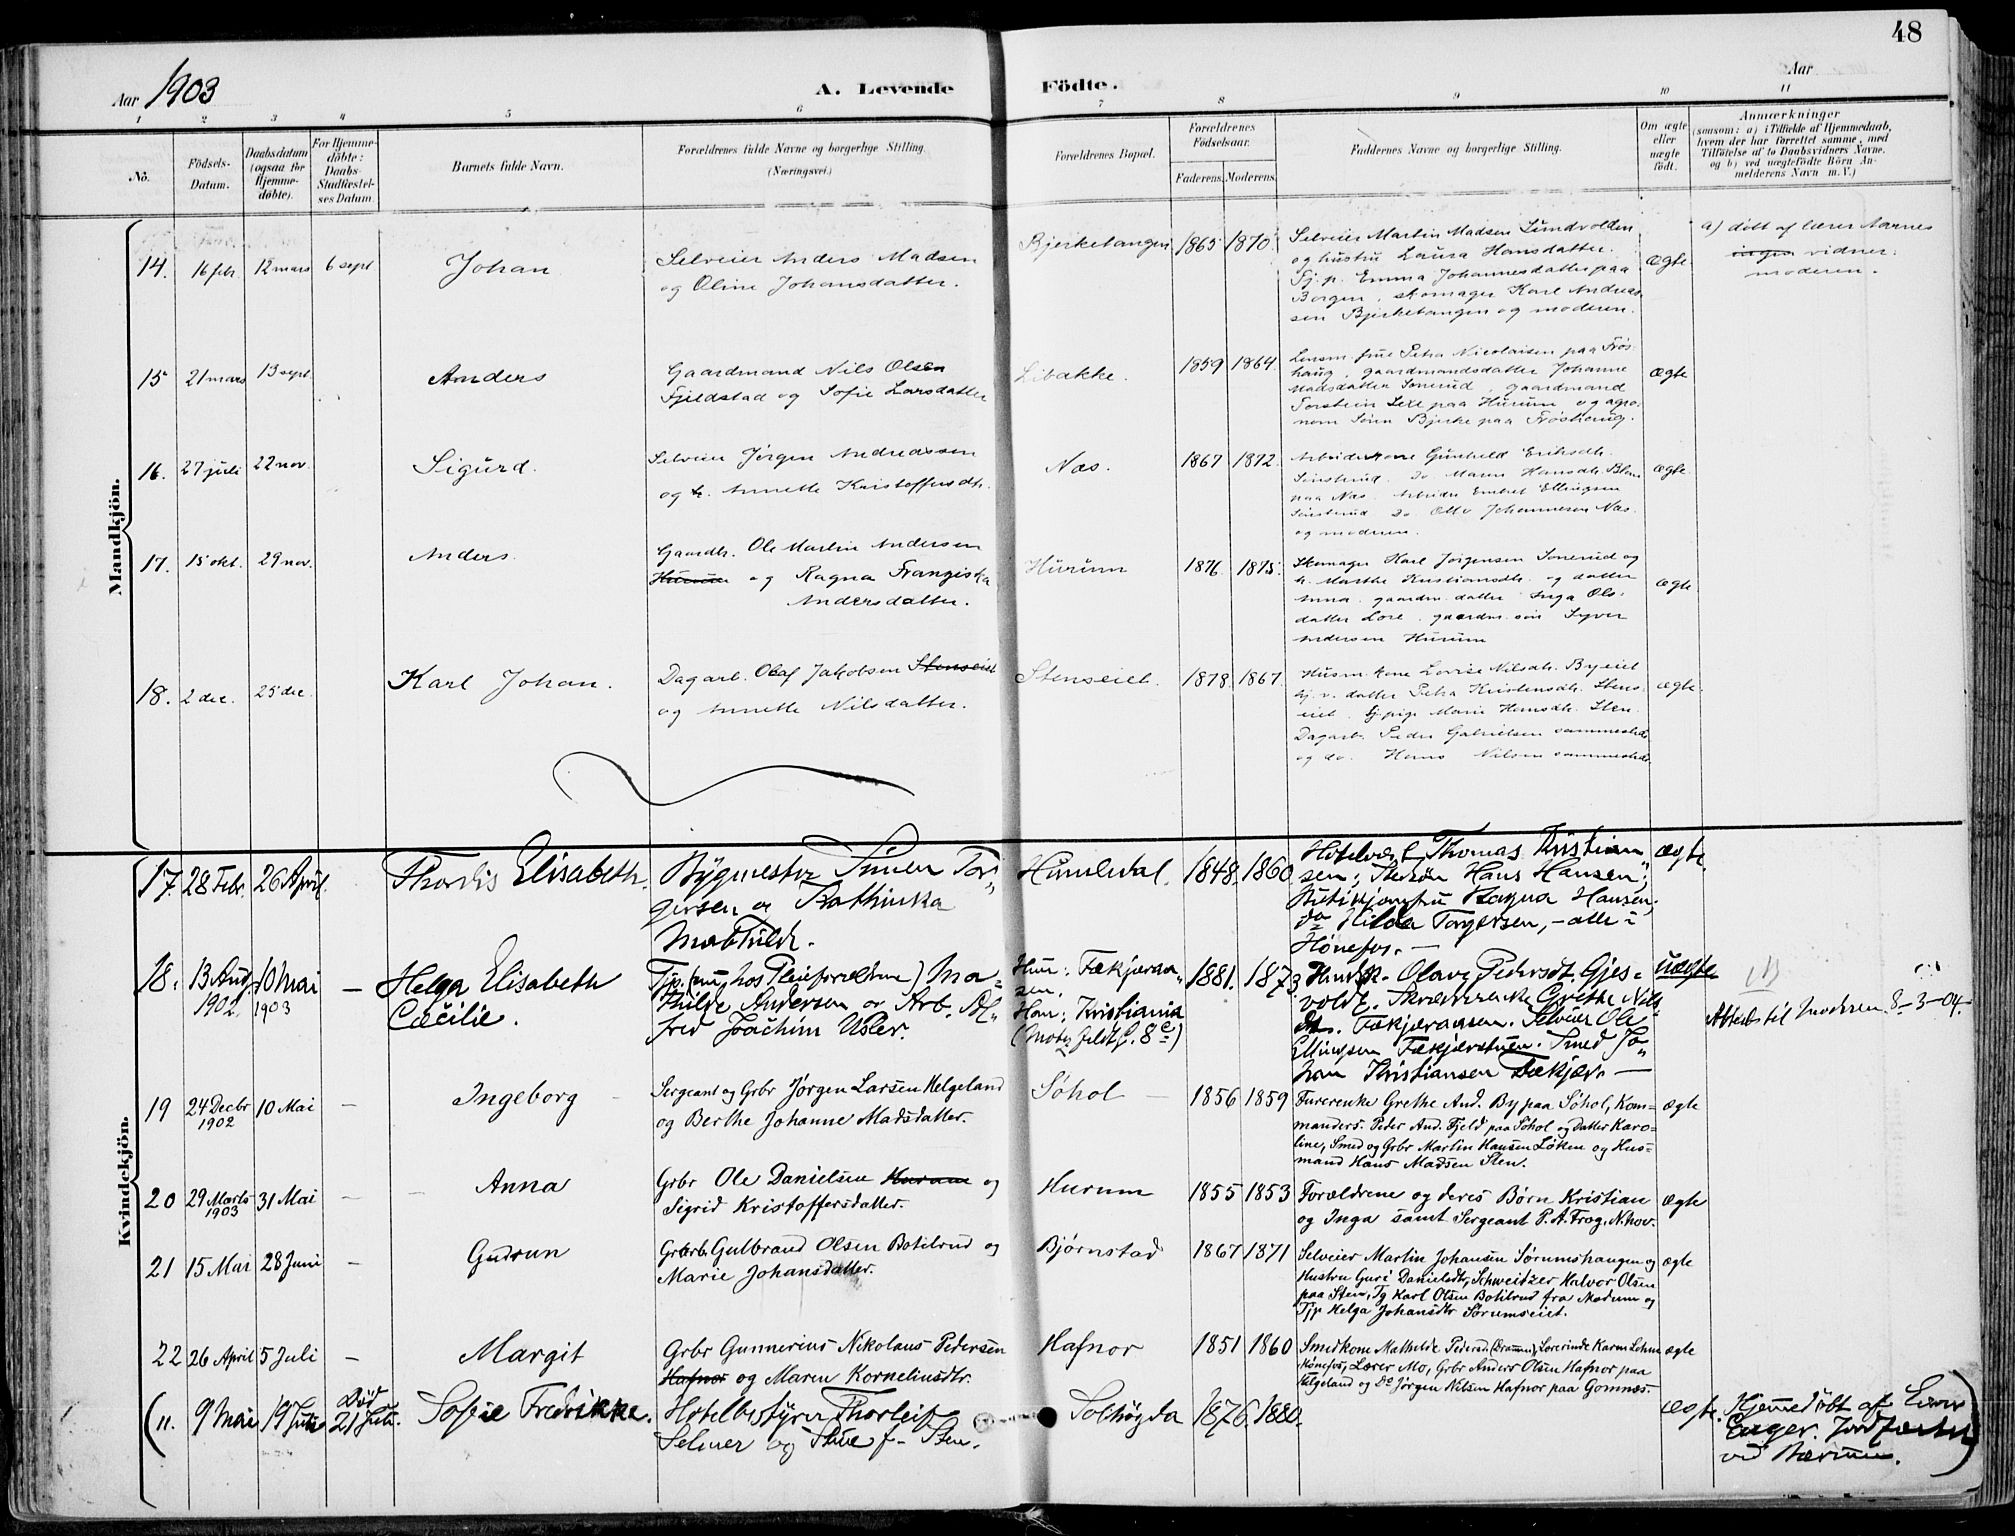 48
Aar 1903
A. Levende Födte.
Aar
1 2 3 4 5 6 7 8 9 10 11
No.
Födsels-Datum.
Daabsdatum (ogsaa for Hjemme-döbte).
For Hjemme-döbte: Daabs-Stadfæstel-ses Datum.
Barnets fulde Navn.
Forældrenes fulde Navne og borgerlige Stilling. (Næringsvei.)
Forældrenes Bopæl.
Forældrenes Födselsaar.
Faderens. Moderens.
Faddernes Navne og borgerlige Stilling.
Om ægte eller uægte födt.
Anmærkninger
(saasom: a) i Tilfælde af Hjemmedaab,
hvem der har forrettet samme, med
Tilföielse af to Daabsvidners Navne.
og b) ved uægtefödte Börn An-
melderens Navn m. V.)
Mandkjön.
14. 16 febr. 12 mars 6 sept Johan
Selveier Anders Madsen
og Oline Johansdatter.
Bjerketangen 1865 1870
Selveier Martin Madsen Lundvolden
og hustru Laura Hansdatter.
Tj. p. Emma Johannesdatter paa
Borgen, skomager Karl Andreas-
sen Bjerketangen og moderen.
ægte.
a) døbt af lærer Aarnes
ingen vidner:
moderen.
15 21 mars 13 sept. Anders
Gaardmand Nils Olsen
Fjeldstad og Sofie Larsdatter
Libakke. 1859 1864.
Lensm. frue Petra Nicolaisen paa Frøs-
haug, gaardmandsdatter Johanne
Madsdatter Sonerud, gaardmand
Torstein Sexe paa Hurum og agro-
nom Søren Bjerke paa Frøshaug.
ægte
16. 27 juli 22 nov. Sigurd.
Selveier Jørgen Andreassen
og h. Annette Kristoffersdtr.
Næs. 1867 1872.
Arbeiderkone Gunhild Eriksdtr.
Sønsterud. Do Maren Hansdtr.
paa Næs. Arbeider Embret Ellingsen
Sønsterud Do Otto Johannesen Næs
og moderen.
ægte.
17. 15 okt. 29 nov. Anders.
Gaardbr. Ole Martin Andersen
Hurum og Ragna Frangiska
Andersdatter.
Hurum 1876 1875.
Skomager Karl Jørgensen Sonerud og
h. Marthe Kristiansdtr. og datter
Anna. gaardm. datter Inga Ols-
datter Lore. gaardm. søn Syver
Andersen Hurum
ægte
18. 2 dec. 25 dec. Karl Johan.
Dagarb. Olaf Jakobsen Stenseiet
og Annette Nilsdatter.
Stenseiet. 1878. 1867.
Husm. kone Lovise Nilsdtr. Byeiet
tj. p. datter Petra Kristensdtr. Stens-
eiet. Tj. pige Marie Hansdtr. Sten.
Dagarb. Peder Gabrielsen sammesteds
og do. Hans Nilsen sammesteds.
ægte.
Kvindekjön.
17. 28 Febr. 26 April. Thordis Elisabeth.
Bygmester Simen Tor-
gersen og Kathinka
Mathilde.
Humledal. 1848. 1860
Hotelvært Thomas Kristian-
sen; Hans Hansen;
Butikjomfru Ragna Hansen;
do Hilda Torgersen, – alle i
Hønefos. –
ægte
18. 13 Aug. 1902. 10 Mai 1903 – Helga Elisabeth
Cæcilie.
Tjp. (nu hos Pleieforældrene) Ma-
thilde Andersen og Arb. Al-
fred Joachim Osler.
Hun: Fækjæraa-
sen.
Han: Kristiania
1881. 1873.
Husmk. Olava Pedersdt. Gjes-
vold. Skrædderenke Grethe Nils-
dtr. Fækjæraasen. Selveier Ole
Ellingsen Fækjærstuen. Smed Jo-
han Kristiansen Fækjær. –
uægte
til Moderen 8-3-04.
19 24 Decbr 1902 10 Mai – Ingeborg –
Sergeant og Grbr Jørgen Larsen Helgeland
og Berthe Johanne Madsdatter.
Søhol – 1856 1859
Furerenke Grethe And. By paa Søhol, Kom-
manders. Peder And. Fjeld paa Søhol og Datter Karo-
line, Smed og Grbr Martin Hansen Løken og Hus-
mand Hans Madsen Sten.
ægte
20 29 Marts 1903 31 Mai – – Anna
Grbr Ole Danielsen Hurum og
Sigrid Kristoffersdatter.
Hurum 1855 1853
Forældrene og deres Børn Kristian
og Inga samt Sergeant P. A. Frog, N.hov.
ægte
21 15 Mai 28 Juni – Gudrun
Grbrb. Gulbrand Olsen Botilrud og
Marie Johansdatter.
Bjørnstad 1867 1871
Selveier Martin Johansen Sørumshaugen og
Hustru Guri Danielsdtr, Schweitzer Halvor Olsen
paa Sten, Tg Karl Olsen Botilrud fra Modum og
Tjp Helga Johansdtr Sørumseiet.
ægte
22 26 April 5 Juli – Margit
Grbr Gunnerius Nikolaus Pedersen
Hafnor og Maren Korneliusdtr.
Hafnor 1851 1860
Smedkone Mathilde Pedersd. (Drammen), Lærerinde Karen Lehne
Hønefos, Lærer Mo, Grbr Anders Olsen Hafnor paa
Helgeland og Do Jørgen Nilsen Hafnor paa Gomnæs.
ægte
(11. 9 Mai 19 Juli Død 21 Juli. Sofie Fredrikke.
Hotelbestyrer Thorleif
Selmer og Hustru f. Sten.
Solhøgda 1876. 1880.
ægte.
Hjemmedøbt af
Enger. Jordfæstet
ved Bærum.)